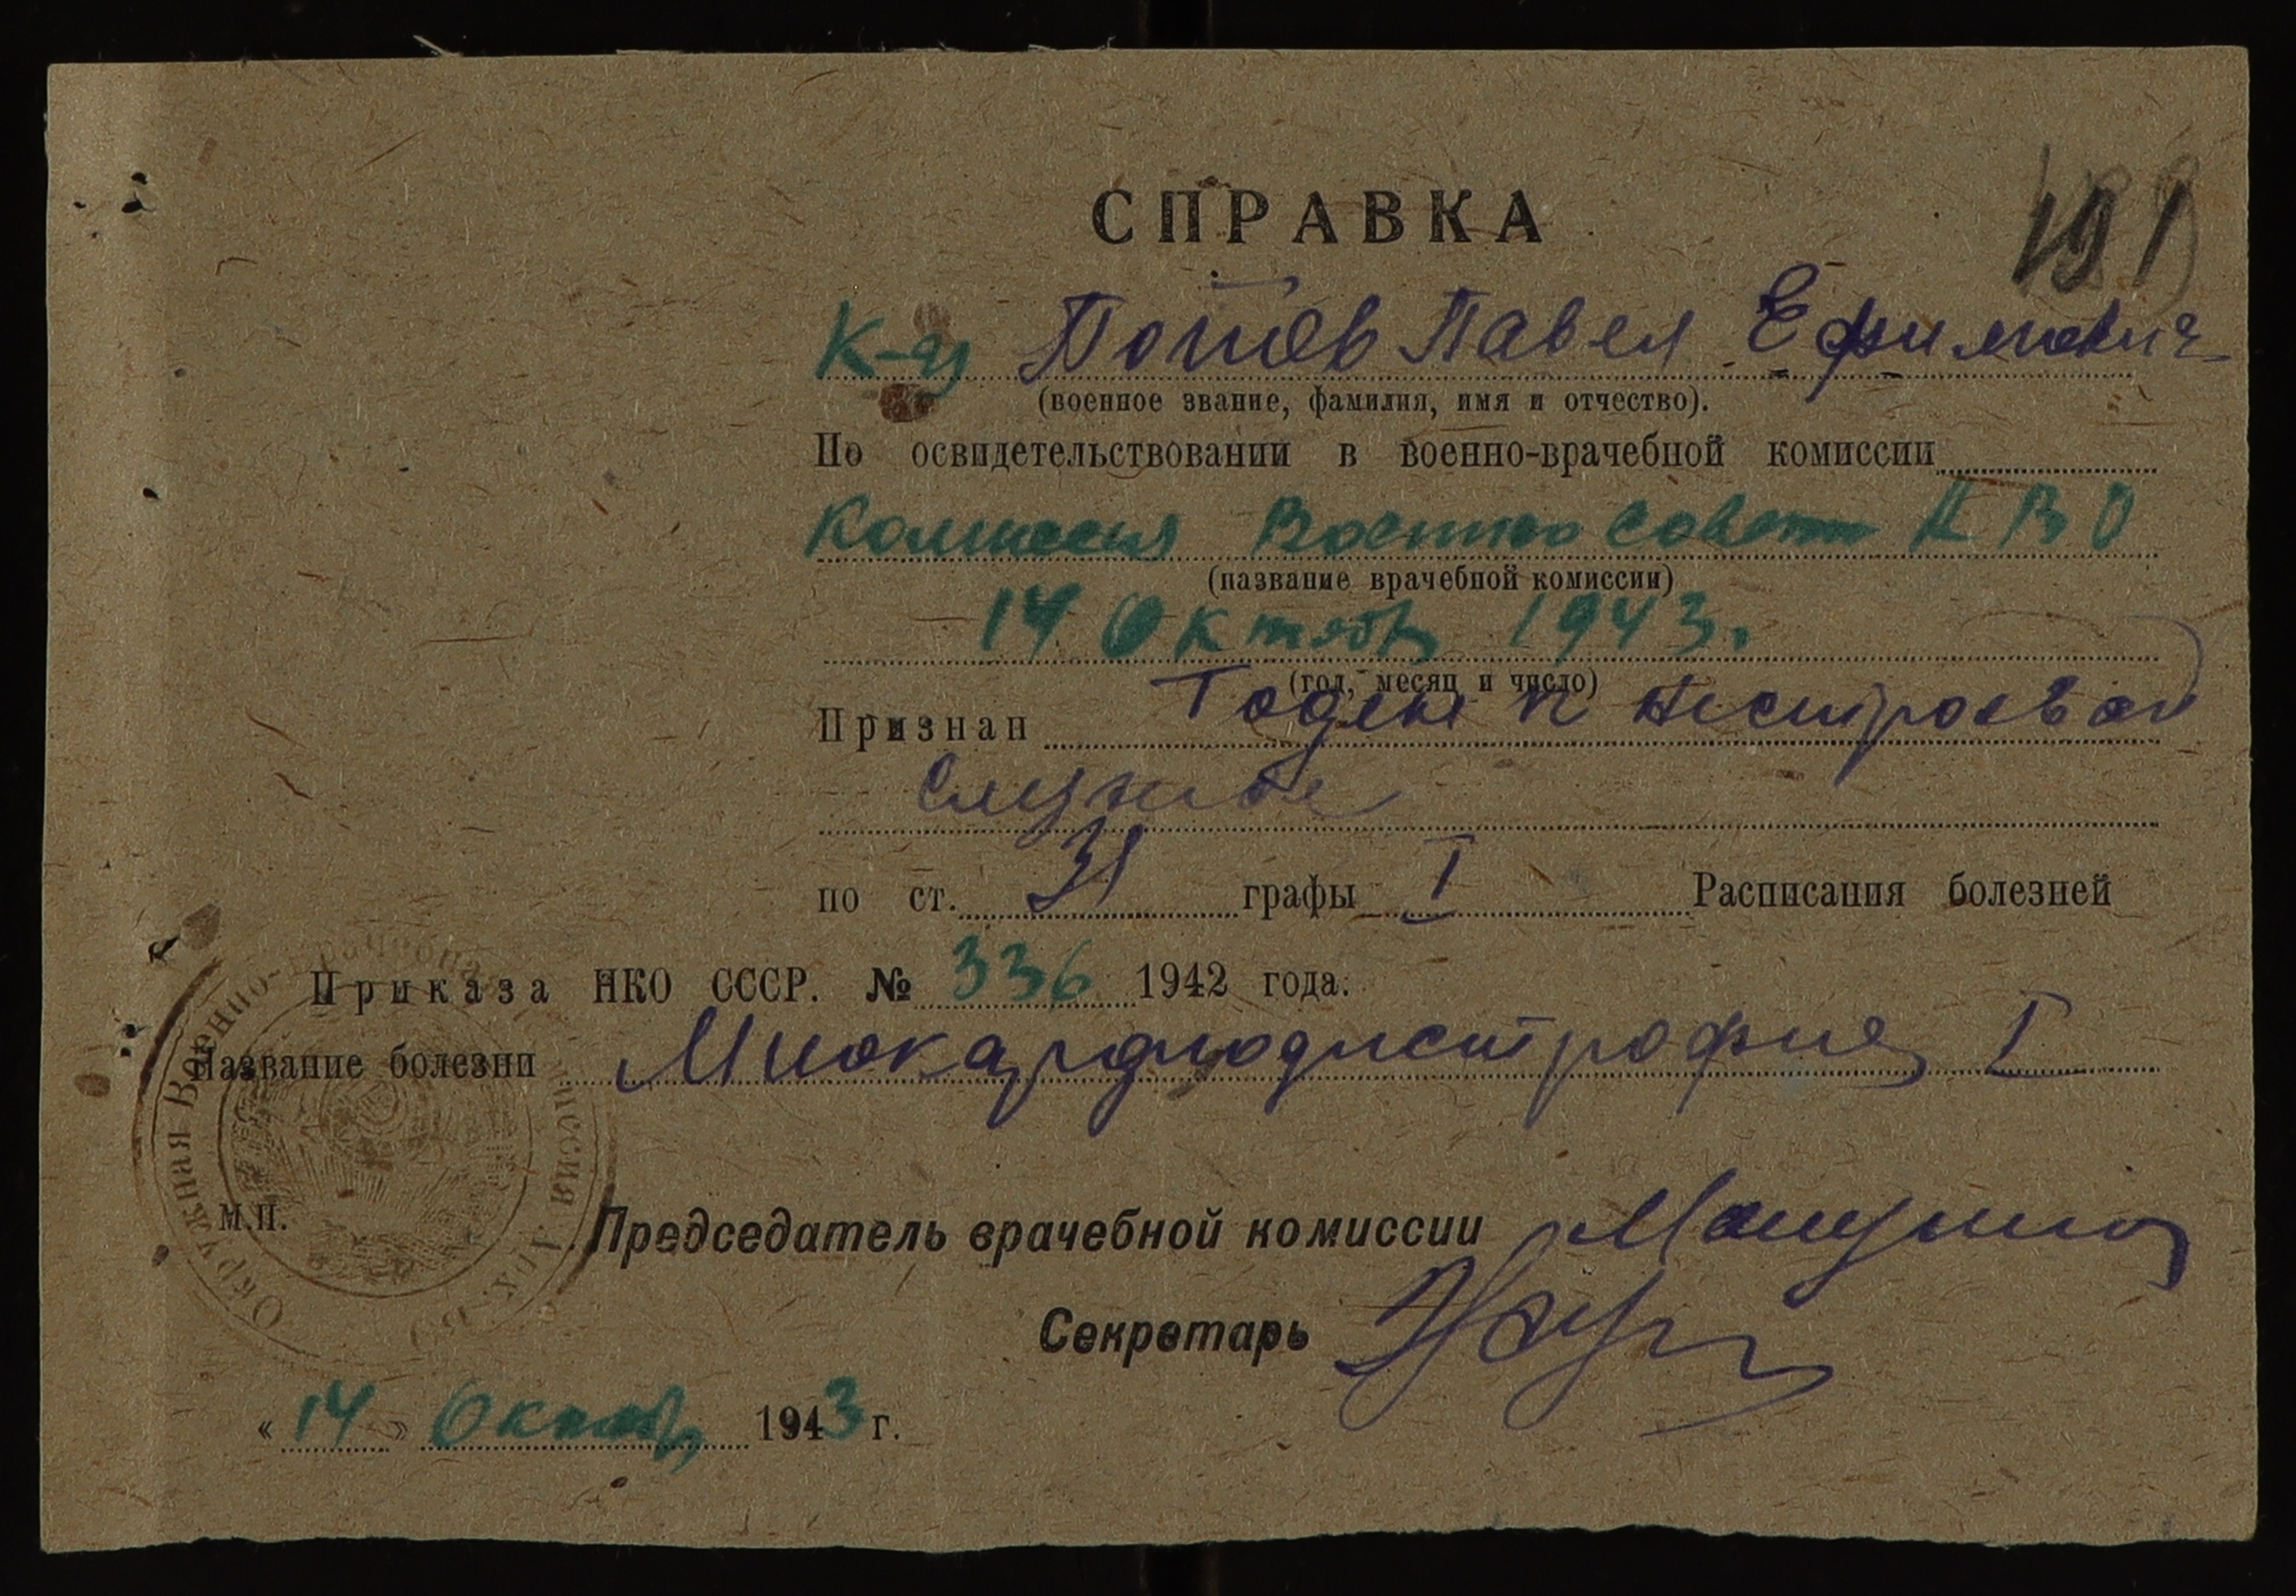 191
СПРАВКА
К-ц Попов Павел Ефимович
(военное звание, фамилия, имя и отчество).
По освидетельствовании в военно-врачебной комиссии
Комиссия Военного Совета АВО
(название врачебной комиссии)
14 Октябр 1943.
(год, месяц и число)
Признан Годен к нестроевой
службе
по ст. 31 графы I Расписания болезней
Приказа НКО СССР. № 336 1942 года.
Название болезни Миокардиодистрофия I
Окружная Военно-врачебная комиссия Арх.В.О
М.П.
Председатель врачебной комиссии
Секретарь
« 14 » Октябр 1943 г.